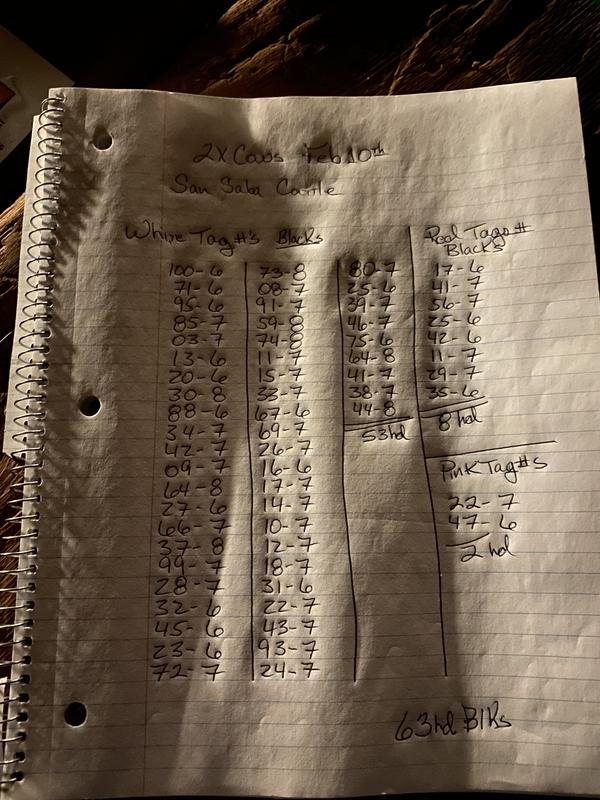 2X Cows Feb 10th
San Saba Cattle
White Tag #'s Blacks
100-6
71-6
95-6
85-7
03-7
13-6
20-6
30-8
88-6
34-7
42-7
09-7
64-8
27-6
66-7
37-8
99-7
28-7
32-6
45-6
23-6
72-7
73-8
08-7
91-7
59-8
74-8
11-7
15-7
33-7
67-6
69-7
26-7
16-6
17-7
14-7
10-7
12-7
18-7
31-6
22-7
43-7
93-7
24-7
80-7
25-6
39-7
46-7
75-6
64-8
41-7
38-7
44-8
53hd
Red Tags #
Blacks
17-6
41-7
56-7
25-6
42-6
11-7
29-7
35-6
8 hd
Pink Tag #s
22-7
47-6
2 hd
63hd Blks